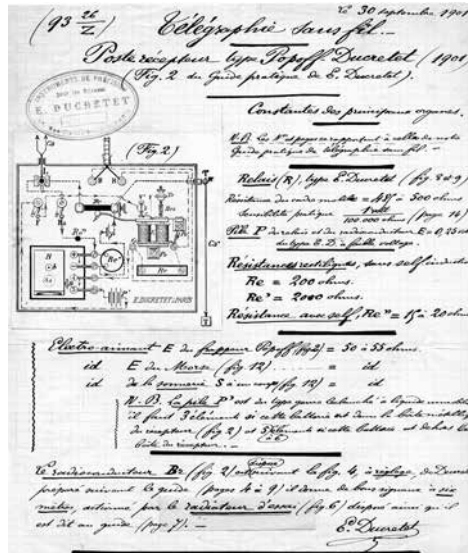 (93 26/Z)
le 30 septembre 1901
Télégraphie sans fil. —
Poste récepteur type Popoff Ducretet (1901)
(Fig. 2 du Guide pratique de E. Ducretet).
INSTRUMENTS DE PRÉCISION
E. DUCRETET
Constantes des principaux organes.
N.B. Les Nos et pages se rapportent à celles de notre
Guide pratique de télégraphie sans fil. —
(Fig. 2)
Relais (R), type E. Ducretet (fig. 8 et 9)
Résistance des cadres mobiles = 450 à 500 ohms
Sensibilité pratique 1 volt / 100.000 ohms (page 14)
Pile P du relais et du radioconducteur E = 0,25
du type E.D. à faible voltage.
Résistances rectilignes, sans self induction
Re = 200 ohms.
Re' = 2000 ohms.
Résistance avec self, Re" = 15 à 20 ohms
E. DUCRETET à PARIS
Electro-aimant E du frappeur Popoff (fig 2) = 50 à 55 ohms.
id E du Morse (fig 12) = id
id de la sonnerie S (fig 12) = id
N.B. La pile P' est du type genre Leclanché à liquide
il faut 3 éléments si cette batterie est dans la boîte
du récepteur (fig 2) et 5 éléments si cette batterie est dehors la
boîte du récepteur. —
Le radioconducteur Br (fig 2) suivant la fig. 4, à réglage, de Ducretet
préparé suivant le guide (pages 4 à 9) il donne de bons signaux à six
mètres, actionné par le radiateur d'essai (fig 6) disposé ainsi qu'il
est dit au guide (page 7). —
E. Ducretet